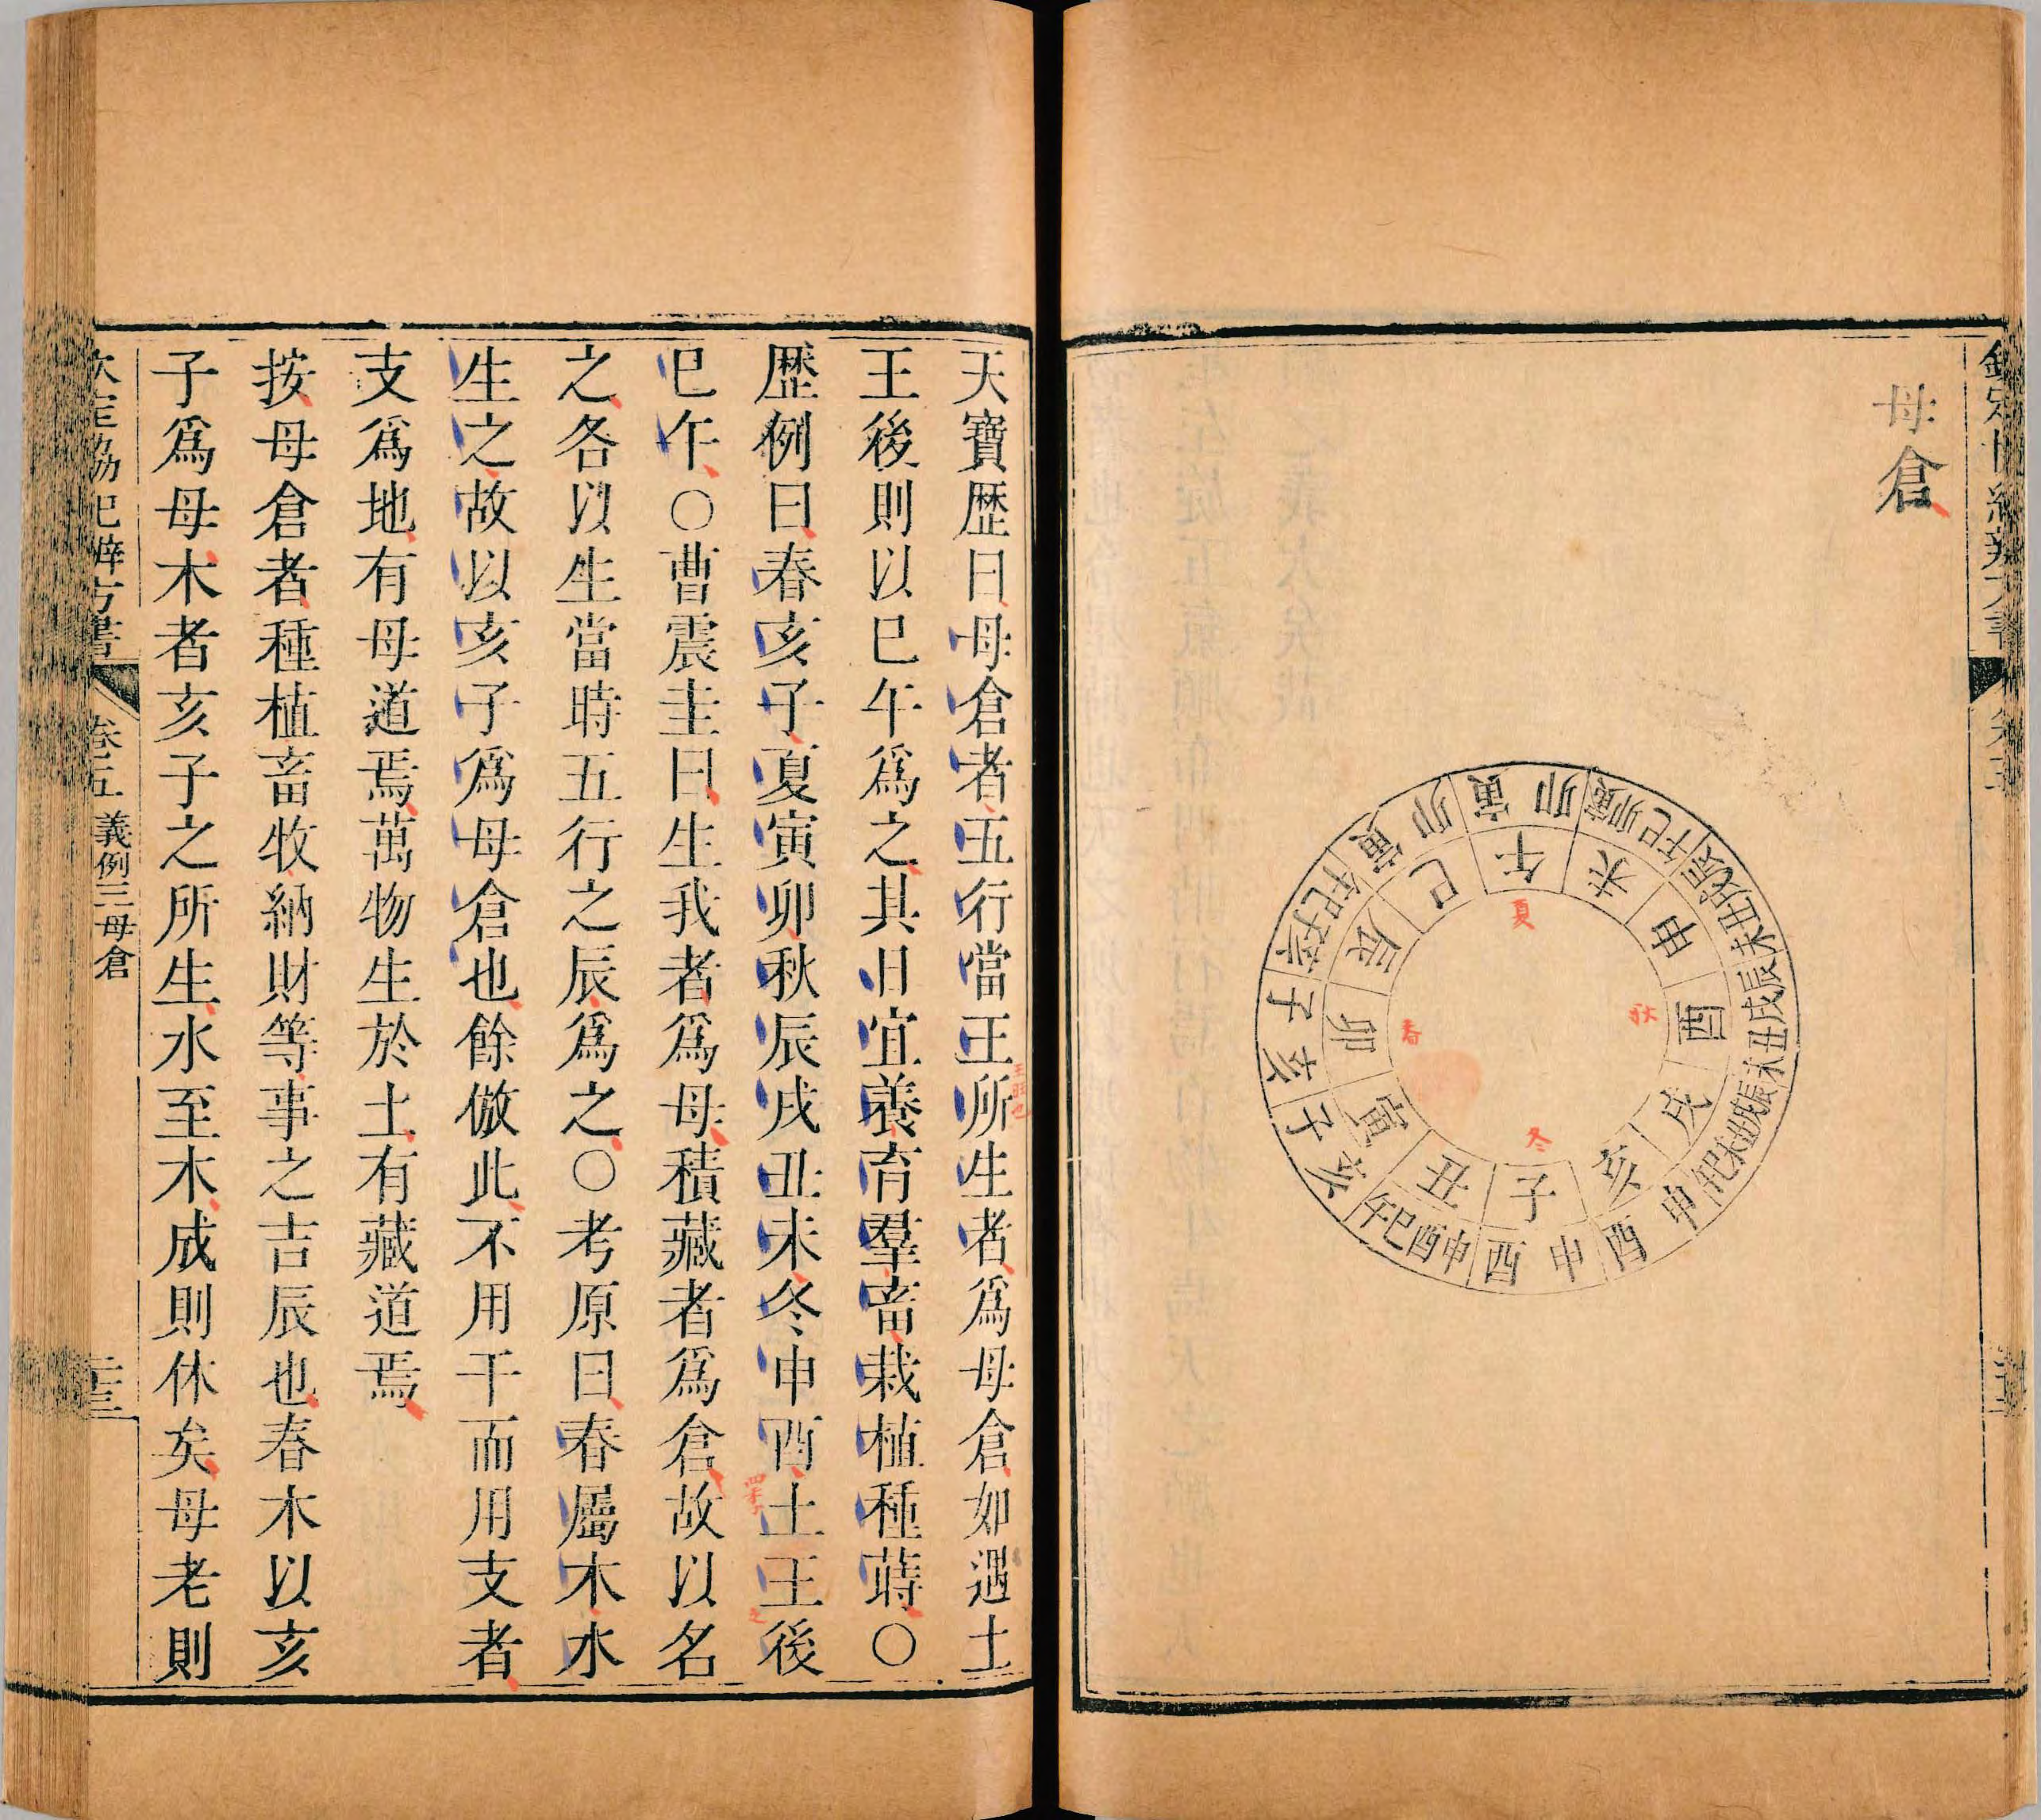 母倉
夏
秋
冬
春
午
未
申
酉
戌
亥
子
丑
寅
卯
辰
巳
寅卯
寅卯巳午
辰戌丑未
辰戌丑未
辰戌丑未巳午
申酉
申酉
申酉巳午
亥子
亥子
亥子巳午
寅卯
天寶歴曰母倉者五行當王所生者爲母倉如遇土
王後則以巳午爲之其日宜養育羣畜栽植種蒔○
歴例曰春亥子夏寅卯秋辰戌丑未冬申酉土王後
巳午○曹震圭曰生我者爲母積藏者爲倉故以名
之各以生當時五行之辰爲之○考原曰春屬木水
生之故以亥子爲母倉也餘倣此不用干而用支者
支爲地有母道焉萬物生於土有藏道焉
按母倉者種植畜牧納財等事之吉辰也春木以亥
子爲母木者亥子之所生水至木成則休矣母老則
欽定協紀辨方書
卷五 義例三母倉
二十三